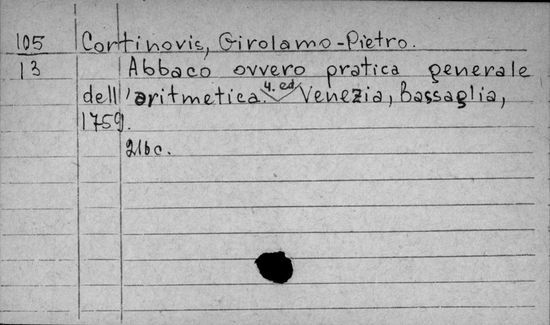 105 Cortinovis, Girolamo-Pietro.
13 Abbaco ovvero pratica generale
dell'aritmetica. 4. ed Venezia, Bassaglia,
1759.
216 c.